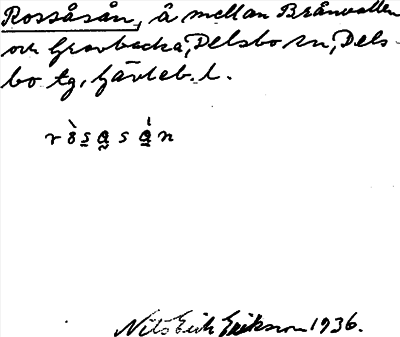 Rossåsån, å mellan Brånvallen
och Gravbacka, Delsbo sn, Dels-
bo tg, Gävleb. l.
Nils Erik Erikson 1936.